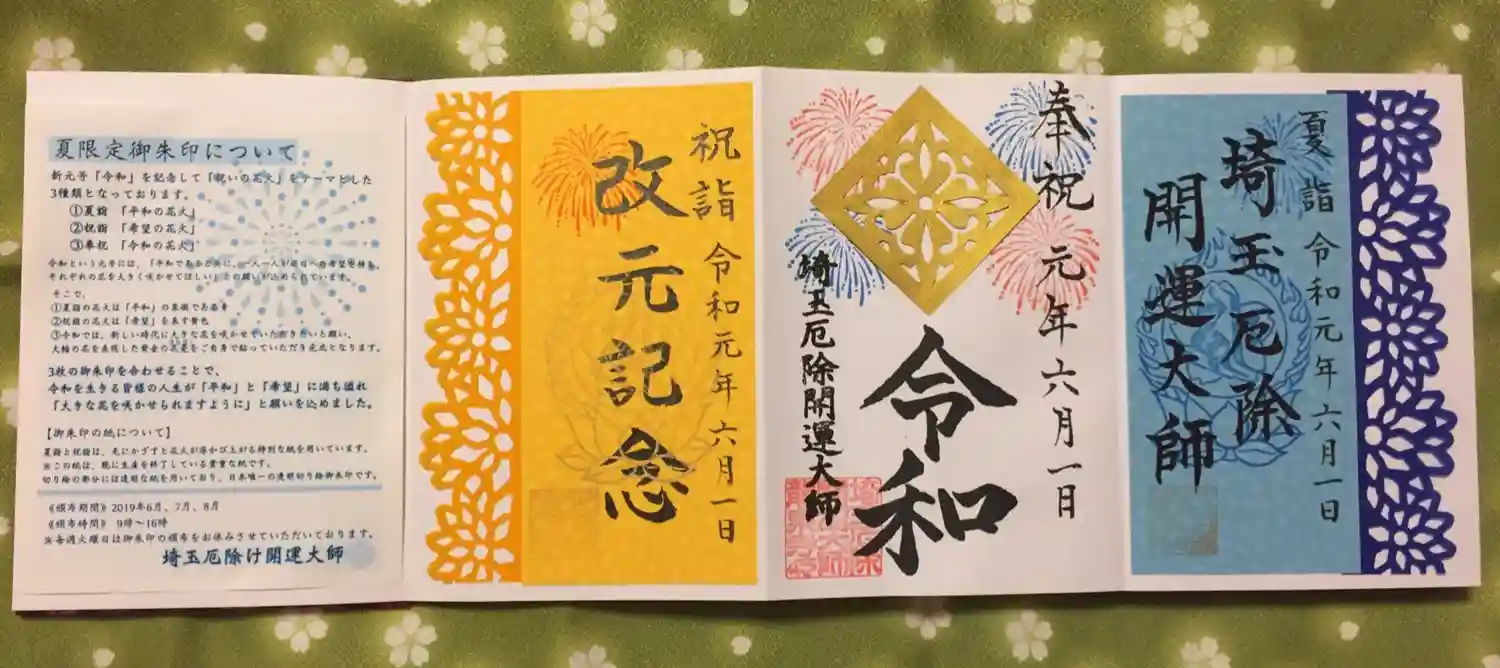 夏限定御朱印について
新元号「令和」を記念して「祝いの花火」をテーマとした
3種類となっております。
①夏詣 「平和の花火」
②祝詣 「希望の花火」
③奉祝 「令和の花火」
令和という元号には、「平和であると共に、一人一人が明日への希望を持ち、
それぞれの花を大きく咲かせてほしい」との願いが込められています。
そこで、
①夏詣の花火は「平和」の象徴である青
②祝詣の花火は「希望」を表す黄色
③令和では、新しい時代に大きな花を咲かせていただきたいと願い、
大輪の花を表現した黄金の花菱をご自身で貼っていただき完成となります。
3枚の御朱印を合わせることで、
令和を生きる皆様の人生が「平和」と「希望」に満ち溢れ
「大きな花を咲かせられますように」と願いを込めました。
【御朱印の紙について】
夏詣と祝詣は、光にかざすと花火が浮かび上がる特別な紙を用いています。
※この紙は、既に生産を終了している貴重な紙です。
切り絵の部分には透明な紙を用いており、日本唯一の透明切り絵御朱印です。
《頒布期間》2019年6月、7月、8月
《頒布時間》 9時～16時
※毎週火曜日は御朱印の頒布をお休みさせていただいております。
埼玉厄除け開運大師
祝詣 令和元年六月一日
改元記念
奉祝 元年六月一日
令和
埼玉厄除開運大師
夏詣 令和元年六月一日
埼玉厄除
開運大師